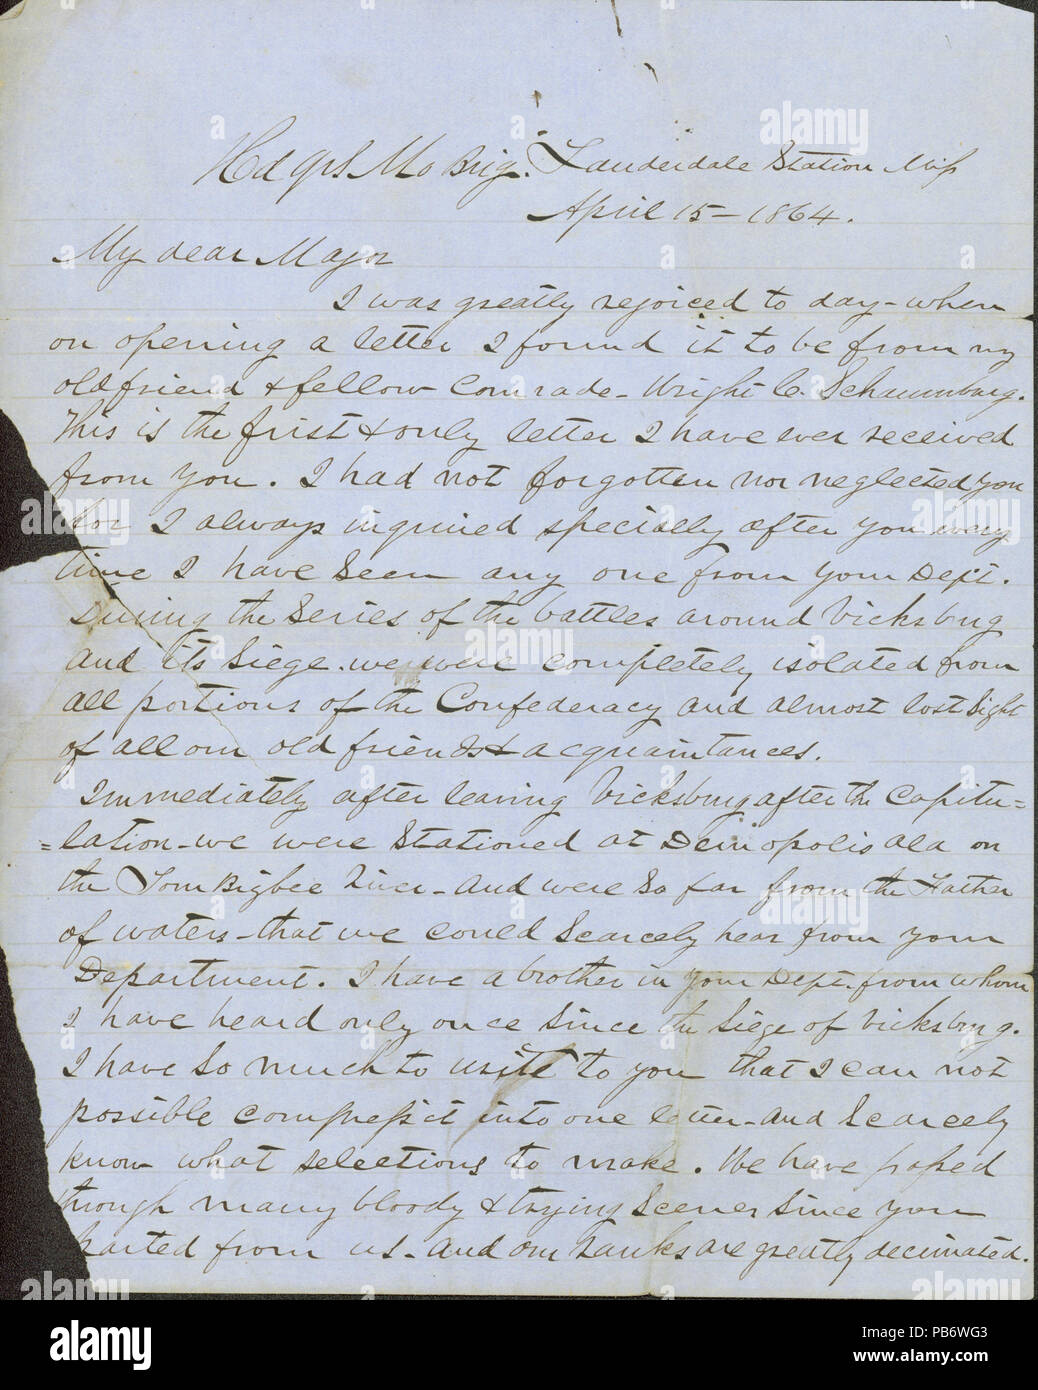 Hd Qrs Mo Brig. Lauderdale Station Miss
April 15 - 1864.
My dear Major
I was greatly rejoiced to day - when
on opening a letter I found it to be from my
old friend & fellow Comrade - Wright C. Schaumburg.
This is the frist & only letter I have ever received
from you. I had not forgotten nor neglected you
for I always inquired specially after you every
time I have seen any one from your Dept.
During the Series of the battles around Vicksburg
and its Siege. we were completely isolated from
all portions of the Confederacy and almost lost sight
of all our old friends & acquaintances.
Immediately after leaving Vicksburg after the Capitu=
=lation - we were Stationed at Demopolis Ala on
the Tom Bigbee River - and were so far from the Father
of waters - that we could scarcely hear from your
Department. I have a brother in your Dept. from whom
I have heard only once since the Siege of Vicksburg.
I have so much to write to you that I can not
possible compress it into one letter - and scarcely
know what selections to make. We have passed
through many bloody & trying scenes since you
parted from us - and our ranks are greatly decimated.
alamy
alamy
alamy
Image ID: PB6WG3
www.alamy.com